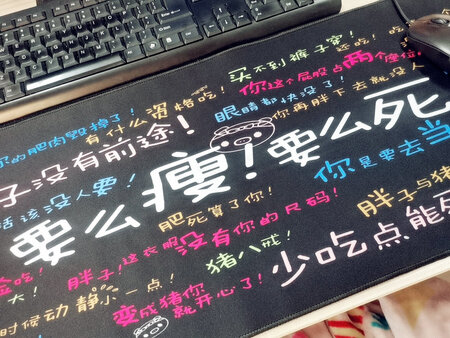 买不到裤子穿！
还吃！
你这个屁股占两个座位！
有什么资格吃！
眼睛都快没了！
你再胖下去就没人
你的肥肉毁掉了！
子没有前途！
要么瘦！要么死
活该没人要！
你是要去当
肥死算了你！
胖子与猪
胖子！这衣服没有你的尺码！
猪八戒！
少吃点能死
时候动静小一点！
变成猪你就开心了！